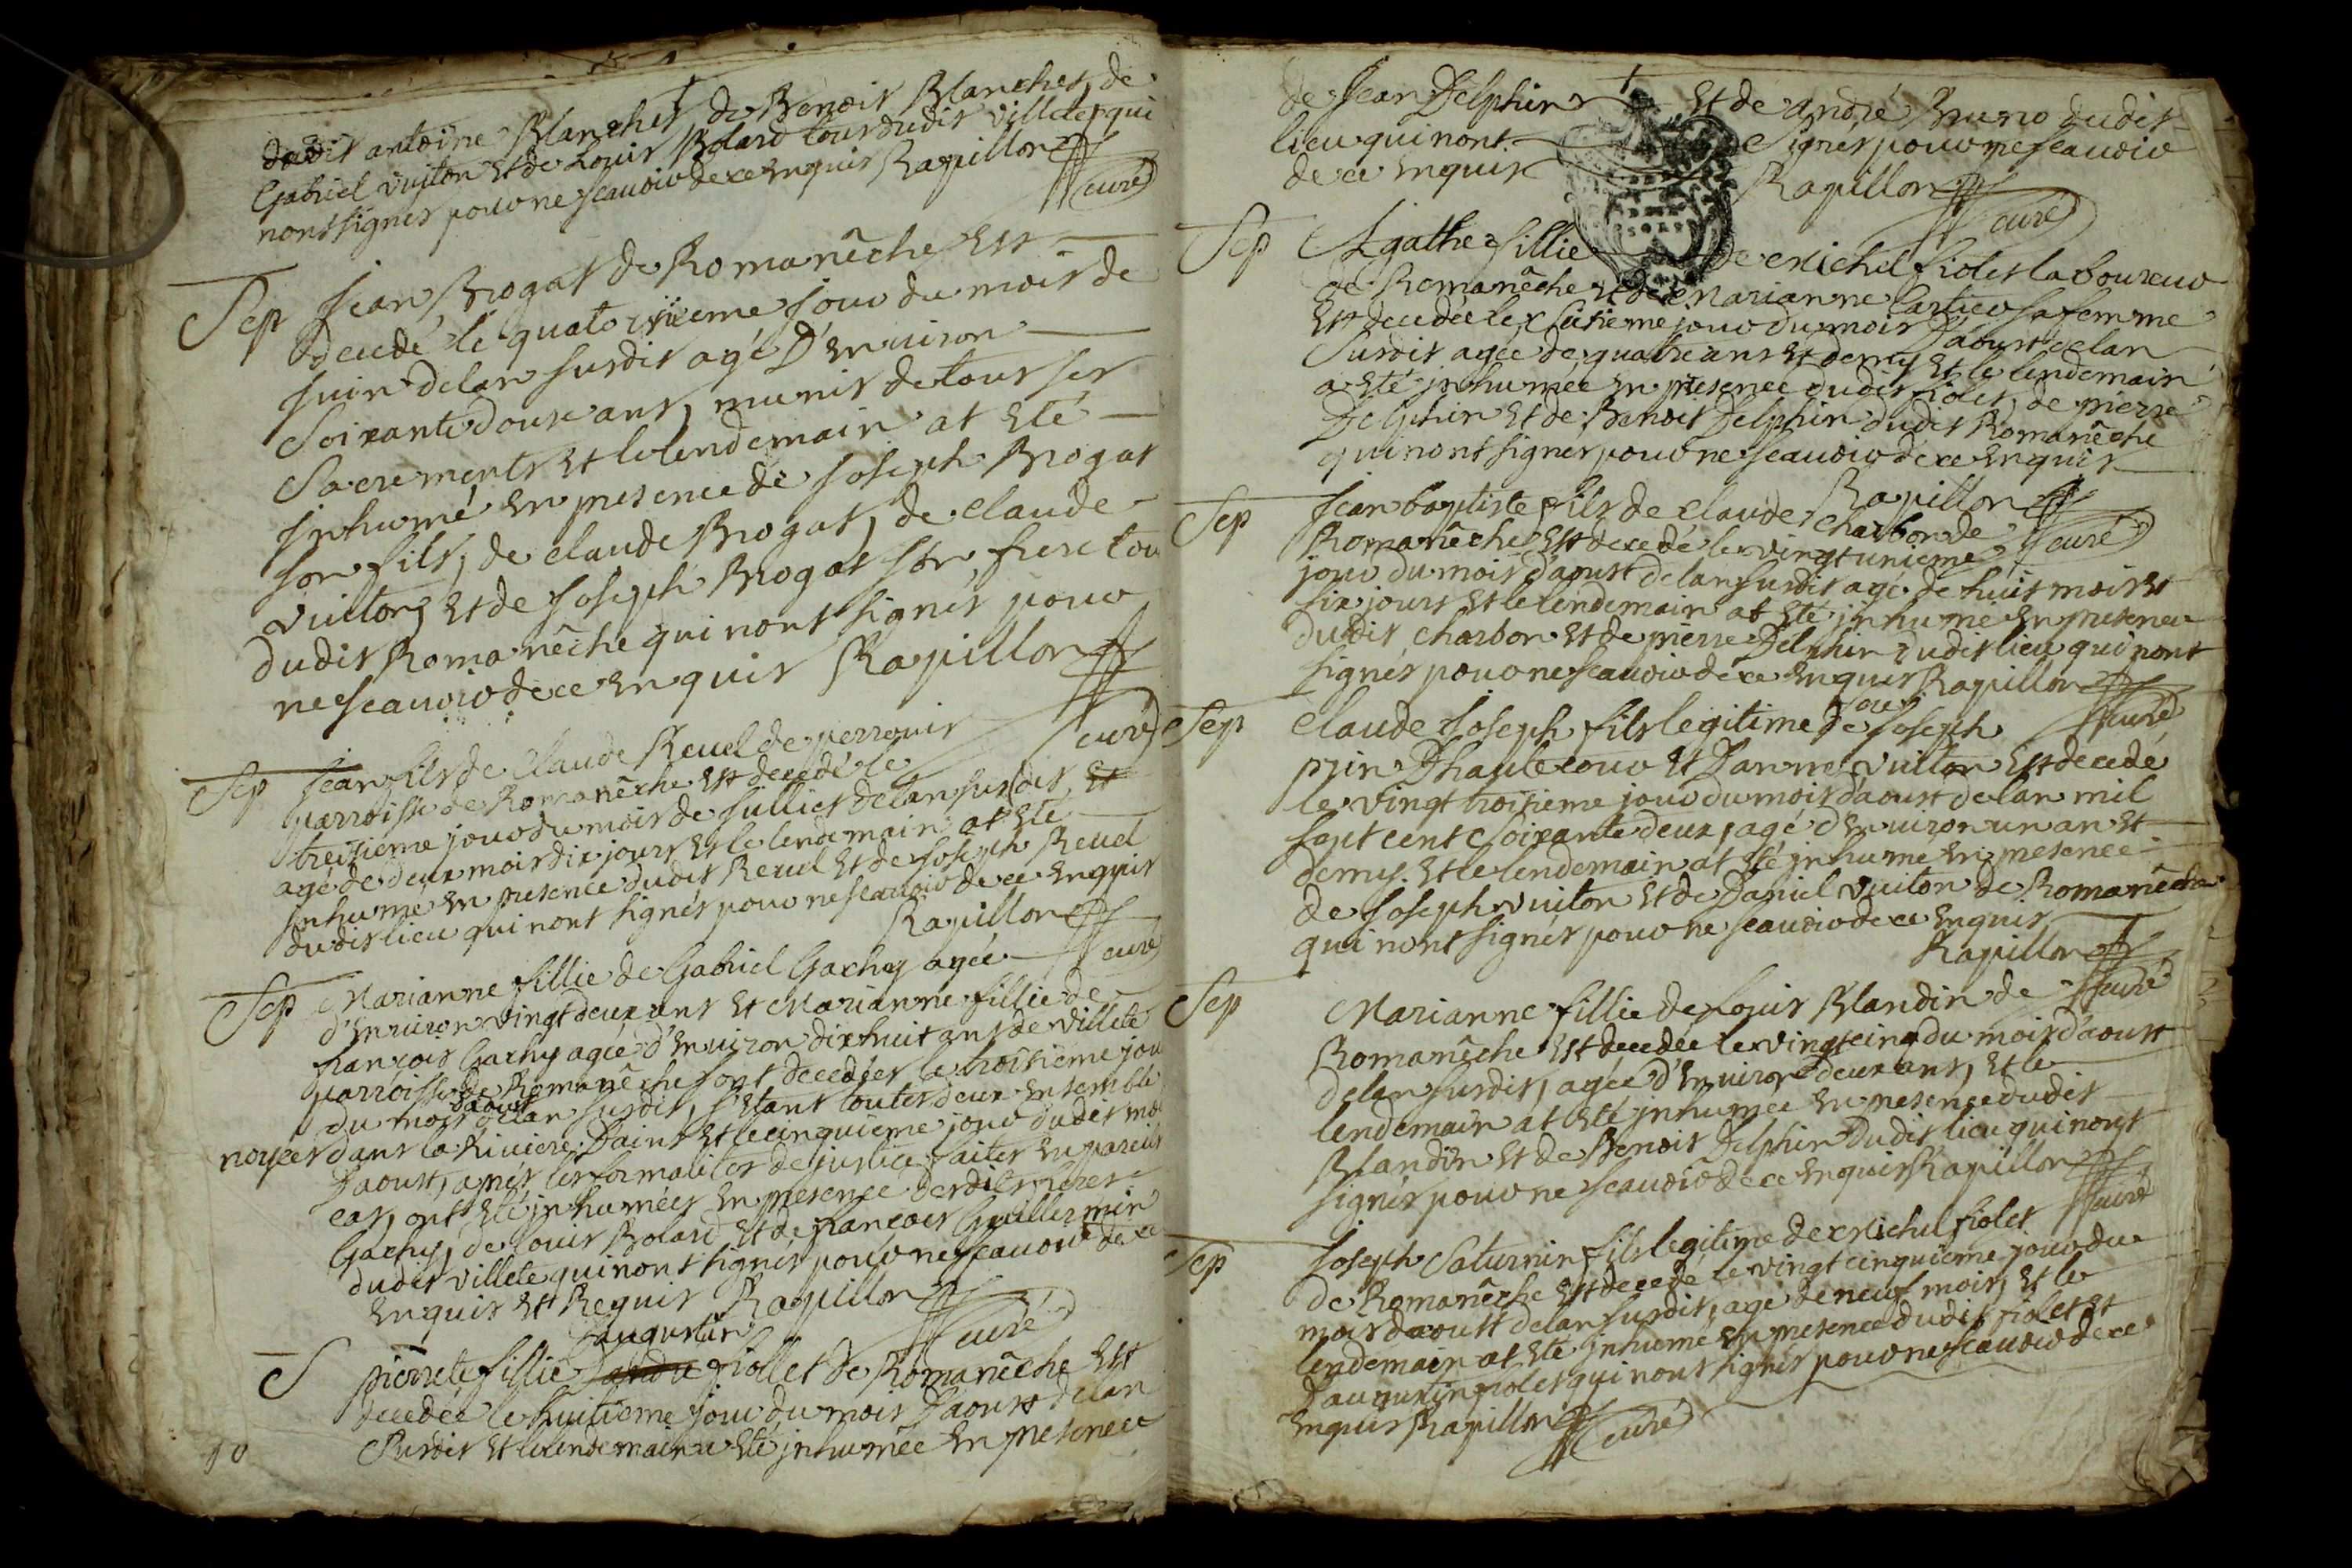 dudit antoine Blanchet, de Benoit Blanchet, de
Gabriel vuiton et de Louis Bolard tous dudit villete qui
nont signés pour ne scauoir de ce enquis Rapillon
curé
Sep Jean Brogat de Romanêche est
decedé le quatorzieme jour du mois de
juin de lan susdit agé D'enuiron
Soixante douze ans, munit de tous ses
Sacrements et le lendemain at eté
inhumé en presence de joseph Brogat
son fils, de claude Brogat, de claude
vuiton et de joseph Brogat son frere tou
dudit Romanêche qui nont signés pour
ne scauoir de ce enquis Rapillon
curé
Sep Jean fils de claude Reuel de perrouis
parroisse de Romanêche est decedé le
treizieme jour du mois de juillict de lan susdit, et
agé de deux mois dix jours et le lendemain at eté
inhumé en presence dudit Reuel et de joseph Reuel
dudit lieu qui nont signés pour ne scauoir de ce enquis
Rapillon
curé
Sep Marianne fillie de Gabriel Gachy agée
d'enuiron vingt deux ans et Marianne fillie de
françois Gachy agée d'enuiron dixhuit ans de villete
parroisse de Romanêche sont decedées le troisieme jou
du mois daoust de lan susdit, s'etant toutes deux ensemble
noyées dans la Riuiere Dains et le cinquieme jour dudit moi
Daoust, apres les formalites de justice faites en pareils
cas, ont eté inhumées en presence desdits
Gachy, de louis Bolard et de françois Guillermin
dudit villete qui nont signés pour ne scauoir de ce
enquis et Requis Rapillon
curé
S pierrete fillie Daugustin fiollet de Romanêche est
decedée le huitieme jour du mois Daoust de lan
Susdit et le lendemain a eté inhumée en presence
10
de Jean Delphin et de andré Bruno dudit
lieu qui nont Signés pour ne scauoir
de ce enquis Rapillon
curé
Sep Agathe fillie de Michel fiolet laboureur
de Romanêche et de Marianne sa femme
est decedée le jour du mois Daoust de lan
Susdit agée de quatre ans et demy et le lendemain
a eté inhumée en presence dudit fiolet, de pierre
Delphin et de Benoit Delphin dudit Romanêche
qui nont signés pour ne scauoir de ce enquis
Rapillon
curé
Sep Jean baptiste fils de claude charbon de
Romanêche est decedé le vingt unieme
jour du mois daoust de lan susdit agé de huit mois et
six jours et le lendemain at eté inhumé en presence
dudit charbon et de pierre Delphin dudit lieu qui nont
signés pour ne scauoir de ce enquis Rapillon
curé
Sep claude Joseph fils legitime de Joseph
prin Dhautecour et Danne vuiton est decedé
le vingt troisieme jour du mois daoust de lan mil
sept cent Soixante deux, agé d'enuiron un an et
demy. et le lendemain at eté inhumé en presence
de Joseph vuiton et de Daniel vuiton de Romanêche
qui nont signés pour ne scauoir de ce enquis
Rapillon
curé
Sep Marianne fillie de Louis Blandin de
Romanêche est decedée le vingt cinq du mois d'aoust
de lan susdit, agée d'enuiron deux ans, et le
lendemain at eté inhumée en presence dudit
Blandin et de Benoit Delphin dudit lieu qui nont
signés pour ne scauoir de ce enquis Rapillon
curé
Sep Joseph Saturnin fils legitime de Michel fiolet
de Romanêche est decedé le vingt cinquieme jour du
mois daoust de lan susdit, agé de neuf mois, et le
lendemain at eté inhumé en presence dudit fiolet et
Daugustin fiolet qui nont signés pour ne scauoir de ce
enquis Rapillon
curé